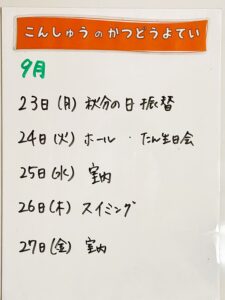 こんしゅうのかつどうよてい
9月
23日(月) 秋分の日 振替
24日(火) ホール ・ たん生日会
25日(水) 室内
26日(木) スイミング
27日(金) 室内